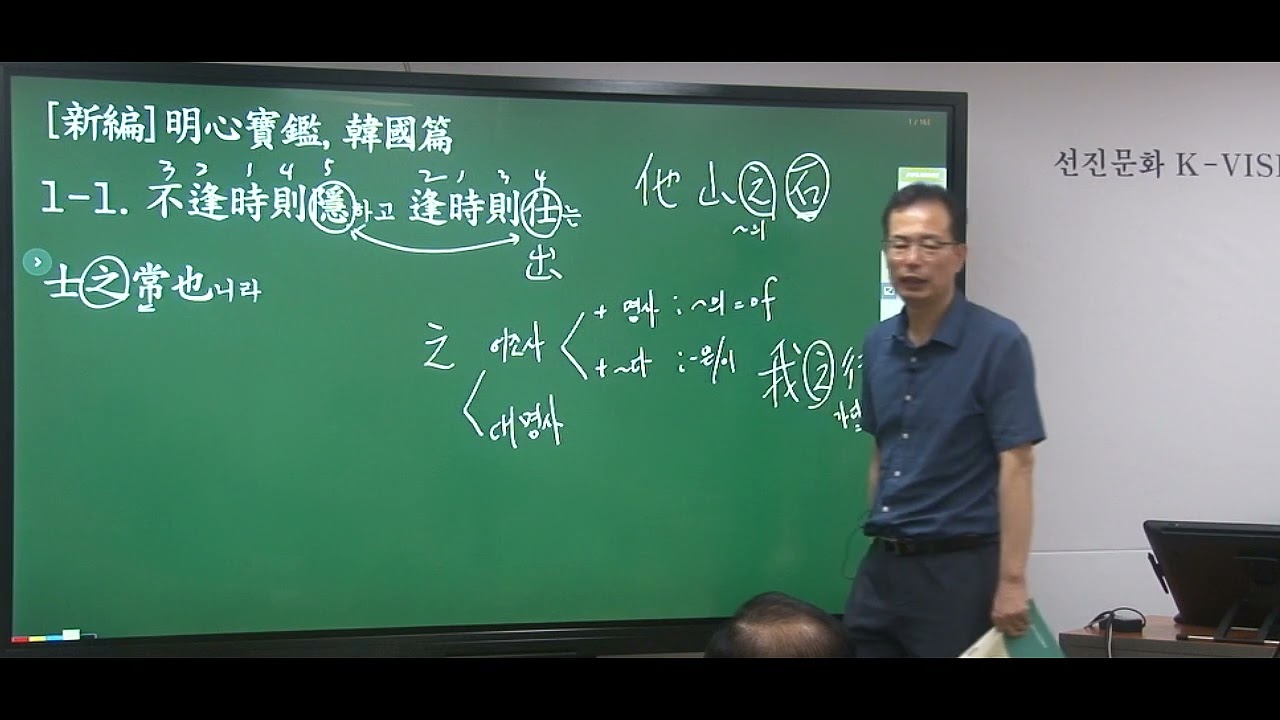 [新編]明心寶鑑, 韓國篇
3 2 1 4 5 2 1 3 4
1-1. 不逢時則隱하고 逢時則仕는
出
士之常也니라
他山之石
~의
之 어조사 + 명사 : ~의 = of
+ ~다 : -은/이
대명사
我之行
선진문화 K-VISI